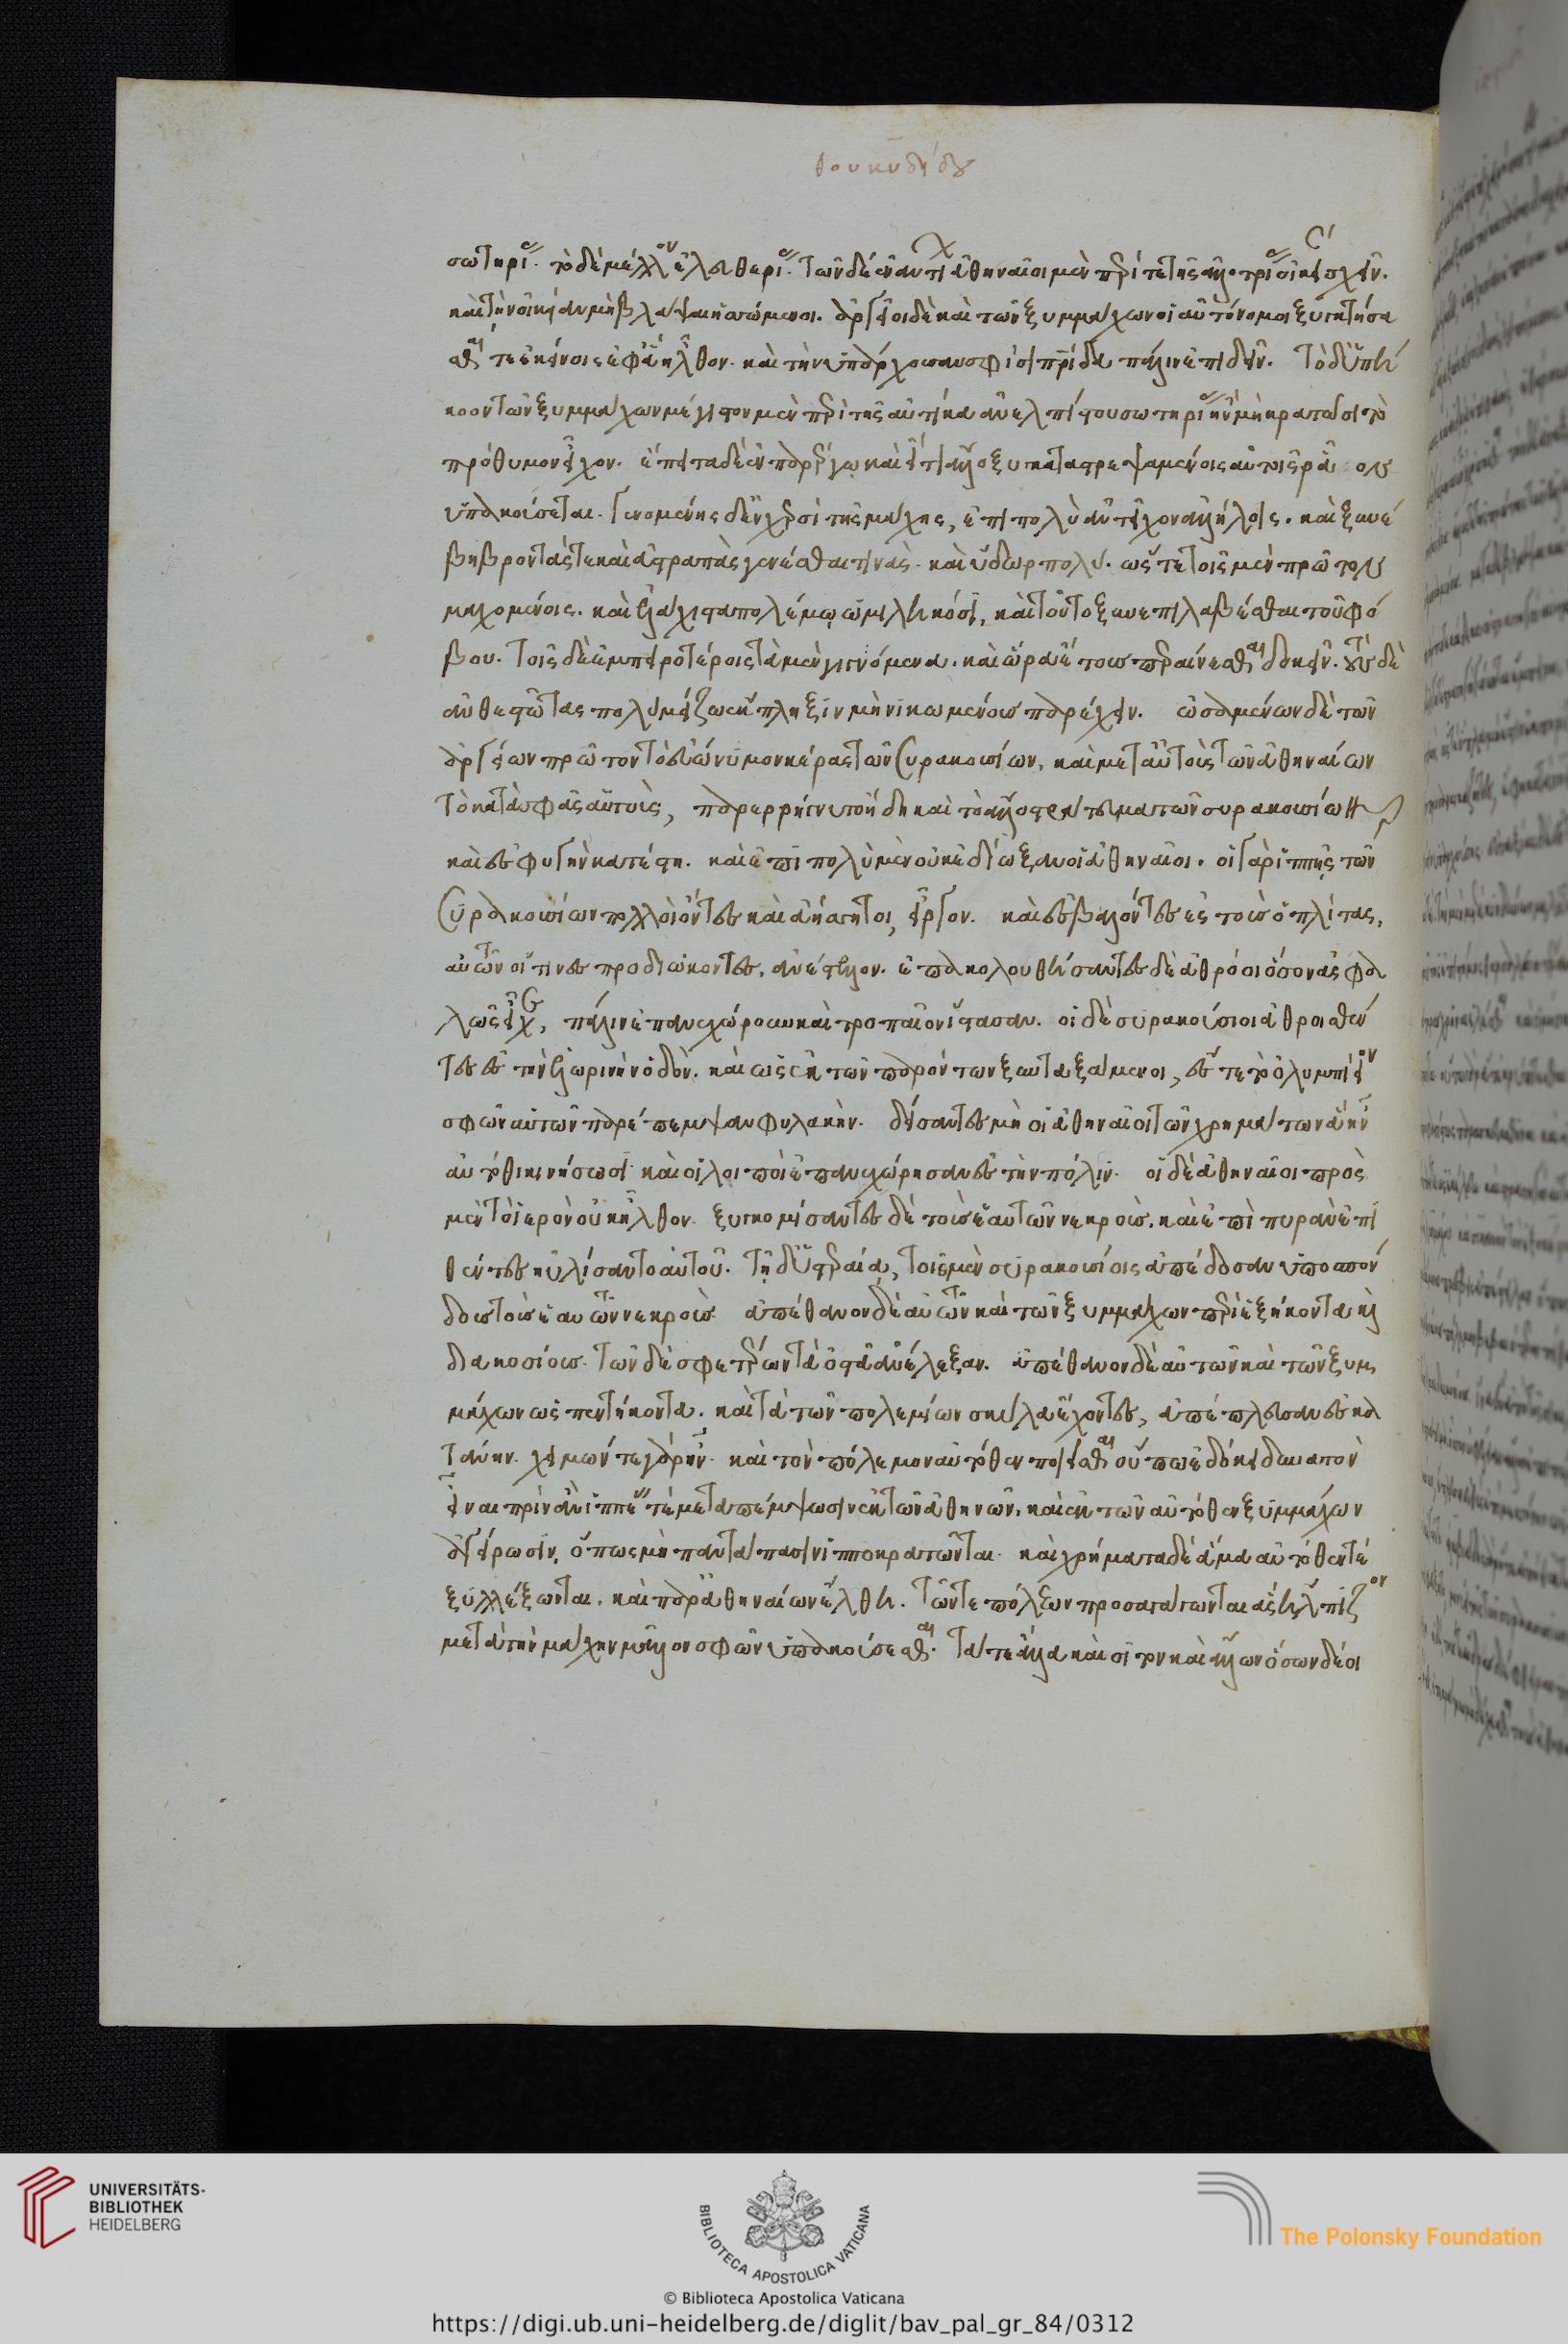 θουκυδίδου
σωτηρίας. τὸ δὲ μέλλον ἐλευθερίας. τῶν δὲ ἐναντίων ἀθηναῖοι μὲν περί τε τῆς ἀλλοτρίας οἰκείας σχεῖν.
καὶ τὴν οἰκείαν μὴ βλάψαι ἡσσώμενοι. ἀργεῖοι δὲ καὶ τῶν ξυμμάχων οἱ αὐτόνομοι ξυγκτήσα
σθαι τε ἐκείνοις ἐφ' ἃ ἦλθον. καὶ τὴν ὑπάρχουσαν σφίσι πατρίδα πάλιν ἐπιδεῖν. τὸ δ' ὑπή
κοον τῶν ξυμμάχων μέγιστον μὲν περὶ τῆς αὐτίκα ἀνελπίστου σωτηρίας ἢν μὴ κρατῶσι τὸ
πρόθυμον εἶχον. ἔπειτα δὲ ἐν παρέργω καὶ εἴ τι ἄλλο ξυγκαταστρεψαμένοις αὐτοῖς ῥᾶον
ὑπακούσεται. γενομένης δ' ἐν χερσὶ τῆς μάχης, ἐπὶ πολὺ ἀντεῖχον ἀλλήλοις. καὶ ξυνέ
βη βροντάς τε καὶ ἀστραπὰς γενέσθαι τινὰς. καὶ ὕδωρ πολύ. ὥστε τοῖς μὲν πρῶτον
μαχομένοις. καὶ ἐλάχιστα πολέμω ὡμιληκόσι, καὶ τοῦτο ξυνεπιλαβέσθαι τοῦ φό
βου. τοῖς δὲ ἐμπειροτέροις τὰ μὲν γιγνόμενα. καὶ ὥρα ἔτους περαίνεσθαι δοκεῖν. τοὺς δὲ
ἀνθεστῶτας πολὺ μείζω ἔκπληξιν μὴ νικωμένους παρέχειν. ὠσαμένων δὲ τῶν
ἀργείων πρῶτον τὸ εὐώνυμον κέρας τῶν συρακουσίων, καὶ μετ' αὐτοὺς τῶν ἀθηναίων
τὸ κατὰ σφᾶς αὐτοὺς, παρερρήγνυτο ἤδη καὶ τὸ ἄλλο στράτευμα τῶν συρακουσίων
καὶ ἐς φυγὴν κατέστη. καὶ ἐπὶ πολὺ μὲν οὐκ ἐδίωξαν οἱ ἀθηναῖοι. οἱ γὰρ ἱππῆς τῶν
συρακουσίων πολλοὶ ὄντες καὶ ἀήσσητοι, εἶργον. καὶ ἐσβαλόντες ἐς τοὺς ὁπλίτας,
αὐτῶν οἵτινες προδιώκοντες, ἀνέστελλον. ἐπακολουθήσαντες δὲ ἀθρόοι ὅσον ἀσφα
λῶς εἶχε, πάλιν ἐπανεχώρουν καὶ τροπαῖον ἵστασαν. οἱ δὲ συρακούσιοι ἀθροισθέν
τες ἐς τὴν ἐλωρινὴν ὁδὸν. καὶ ὡς ἐκ τῶν παρόντων ξυνταξάμενοι, ἔς τε τὸ ὀλυμπιεῖον
σφῶν αὐτῶν παρέπεμψαν φυλακὴν. δείσαντες μὴ οἱ ἀθηναῖοι τῶν χρημάτων ἃ ἦν
αὐτόθι κινήσωσι καὶ οἱ λοιποὶ ἐπανεχώρησαν ἐς τὴν πόλιν. οἱ δὲ ἀθηναῖοι πρὸς
μὲν τὸ ἱερὸν οὐκ ἦλθον. ξυγκομίσαντες δὲ τοὺς ἑαυτῶν νεκροὺς. καὶ ἐπὶ πυρὰν ἐπι
θέντες ηὐλίσαντο αὐτοῦ. τῇ δ' ὑστεραία, τοῖς μὲν συρακουσίοις ἀπέδοσαν ὑποσπόν
δους τοὺς ἑαυτῶν νεκροὺς. ἀπέθανον δὲ αὐτῶν καὶ τῶν ξυμμάχων περὶ ἑξήκοντα καὶ
διακοσίους. τῶν δὲ σφετέρων τὰ ὀστᾶ ἀνέλεξαν. ἀπέθανον δὲ αὐτῶν καὶ τῶν ξυμ
μάχων ὡς πεντήκοντα. καὶ τὰ τῶν πολεμίων σκῦλα ἔχοντες, ἀπέπλευσαν ἐς κα
τάνην. χειμών τε γὰρ ἦν. καὶ τὸν πόλεμον αὐτόθεν ποιεῖσθαι οὔπω ἐδόκει δυνατὸν
εἶναι πρὶν ἂν ἱππέας τὲ μεταπέμψωσιν ἐκ τῶν ἀθηνῶν. καὶ ἐκ τῶν αὐτόθεν ξυμμάχων
ἀγείρωσιν, ὅπως μὴ παντάπασιν ἱπποκρατῶνται. καὶ χρήματα δὲ ἅμα αὐτόθεν τέ
ξυλλέξωνται. καὶ παρ' ἀθηναίων ἔλθη. τῶν τε πόλεων προσαγάγωνται ἃς ἤλπιζον
μετὰ τὴν μάχην μᾶλλον σφῶν ὑπακούσεσθαι. τά τε ἄλλα καὶ σῖτον καὶ ἄλλων ὅσων δέοι
UNIVERSITÄTS-
BIBLIOTHEK
HEIDELBERG
BIBLIOTECA APOSTOLICA VATICANA
The Polonsky Foundation
© Biblioteca Apostolica Vaticana
https://digi.ub.uni-heidelberg.de/diglit/bav_pal_gr_84/0312